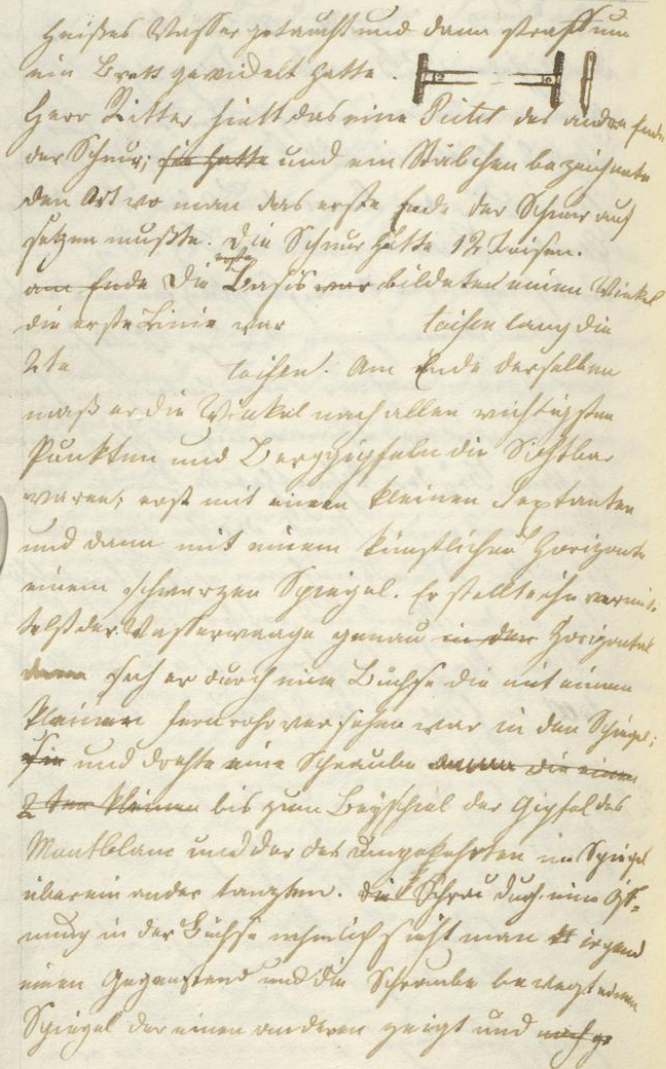 heißes Wasser getaucht und dann straff um
ein Brett gewickelt hatte.
Herr Ritter hielt das eine das andre Ende
der Schnur; sie hatte und ein Stäbchen bezeichnete
den Ort wo man das erste Ende der Schnur auf
setzen mußte. Die Schnur hatte 12 Toisen.
am Ende Die erste Basis war bildeten einen Winkel
die erste Linie war toisen lang die
2te toisen. Am Ende derselben
maß er die Winkel nach allen wichtigsten
Punkten und Berggipfeln die Sichtbar
waren; erst mit einem kleinen Sextanten
und dann mit einem künstlichen Horizonte
einem schwarzen Spiegel. Er stellte ihn vermit-
telst der Wasserwaage genau in den Horizontal
dann sah er durch eine Büchse die mit einem
kleinen Fernrohr versehen war in den Spiegel;
und drehte eine Schraube die einen
2ten kleinen bis zum Beyspiel der Gipfel des
Montblanc und der des umgekehrten im Spiegel
übereinander tanzten. Die durch eine Öff-
nung in der Büchse nehmlich sieht man irgend
einen Gegenstand und die Schraube bewegt einen
Spiegel der einen anderen zeigt und